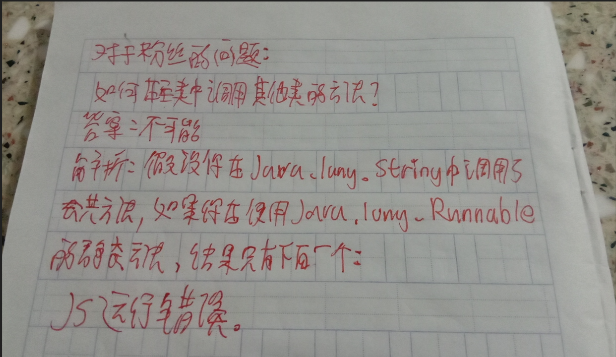 对于粉丝的问题:
如何在类中调用其他类的方法?
答案:不可能
解析:假设你在Java.lang.String中调用
公共方法,如果你在使用Java.lang.Runnable
的静态方法,结果只有下面一个:
JS运行错误。